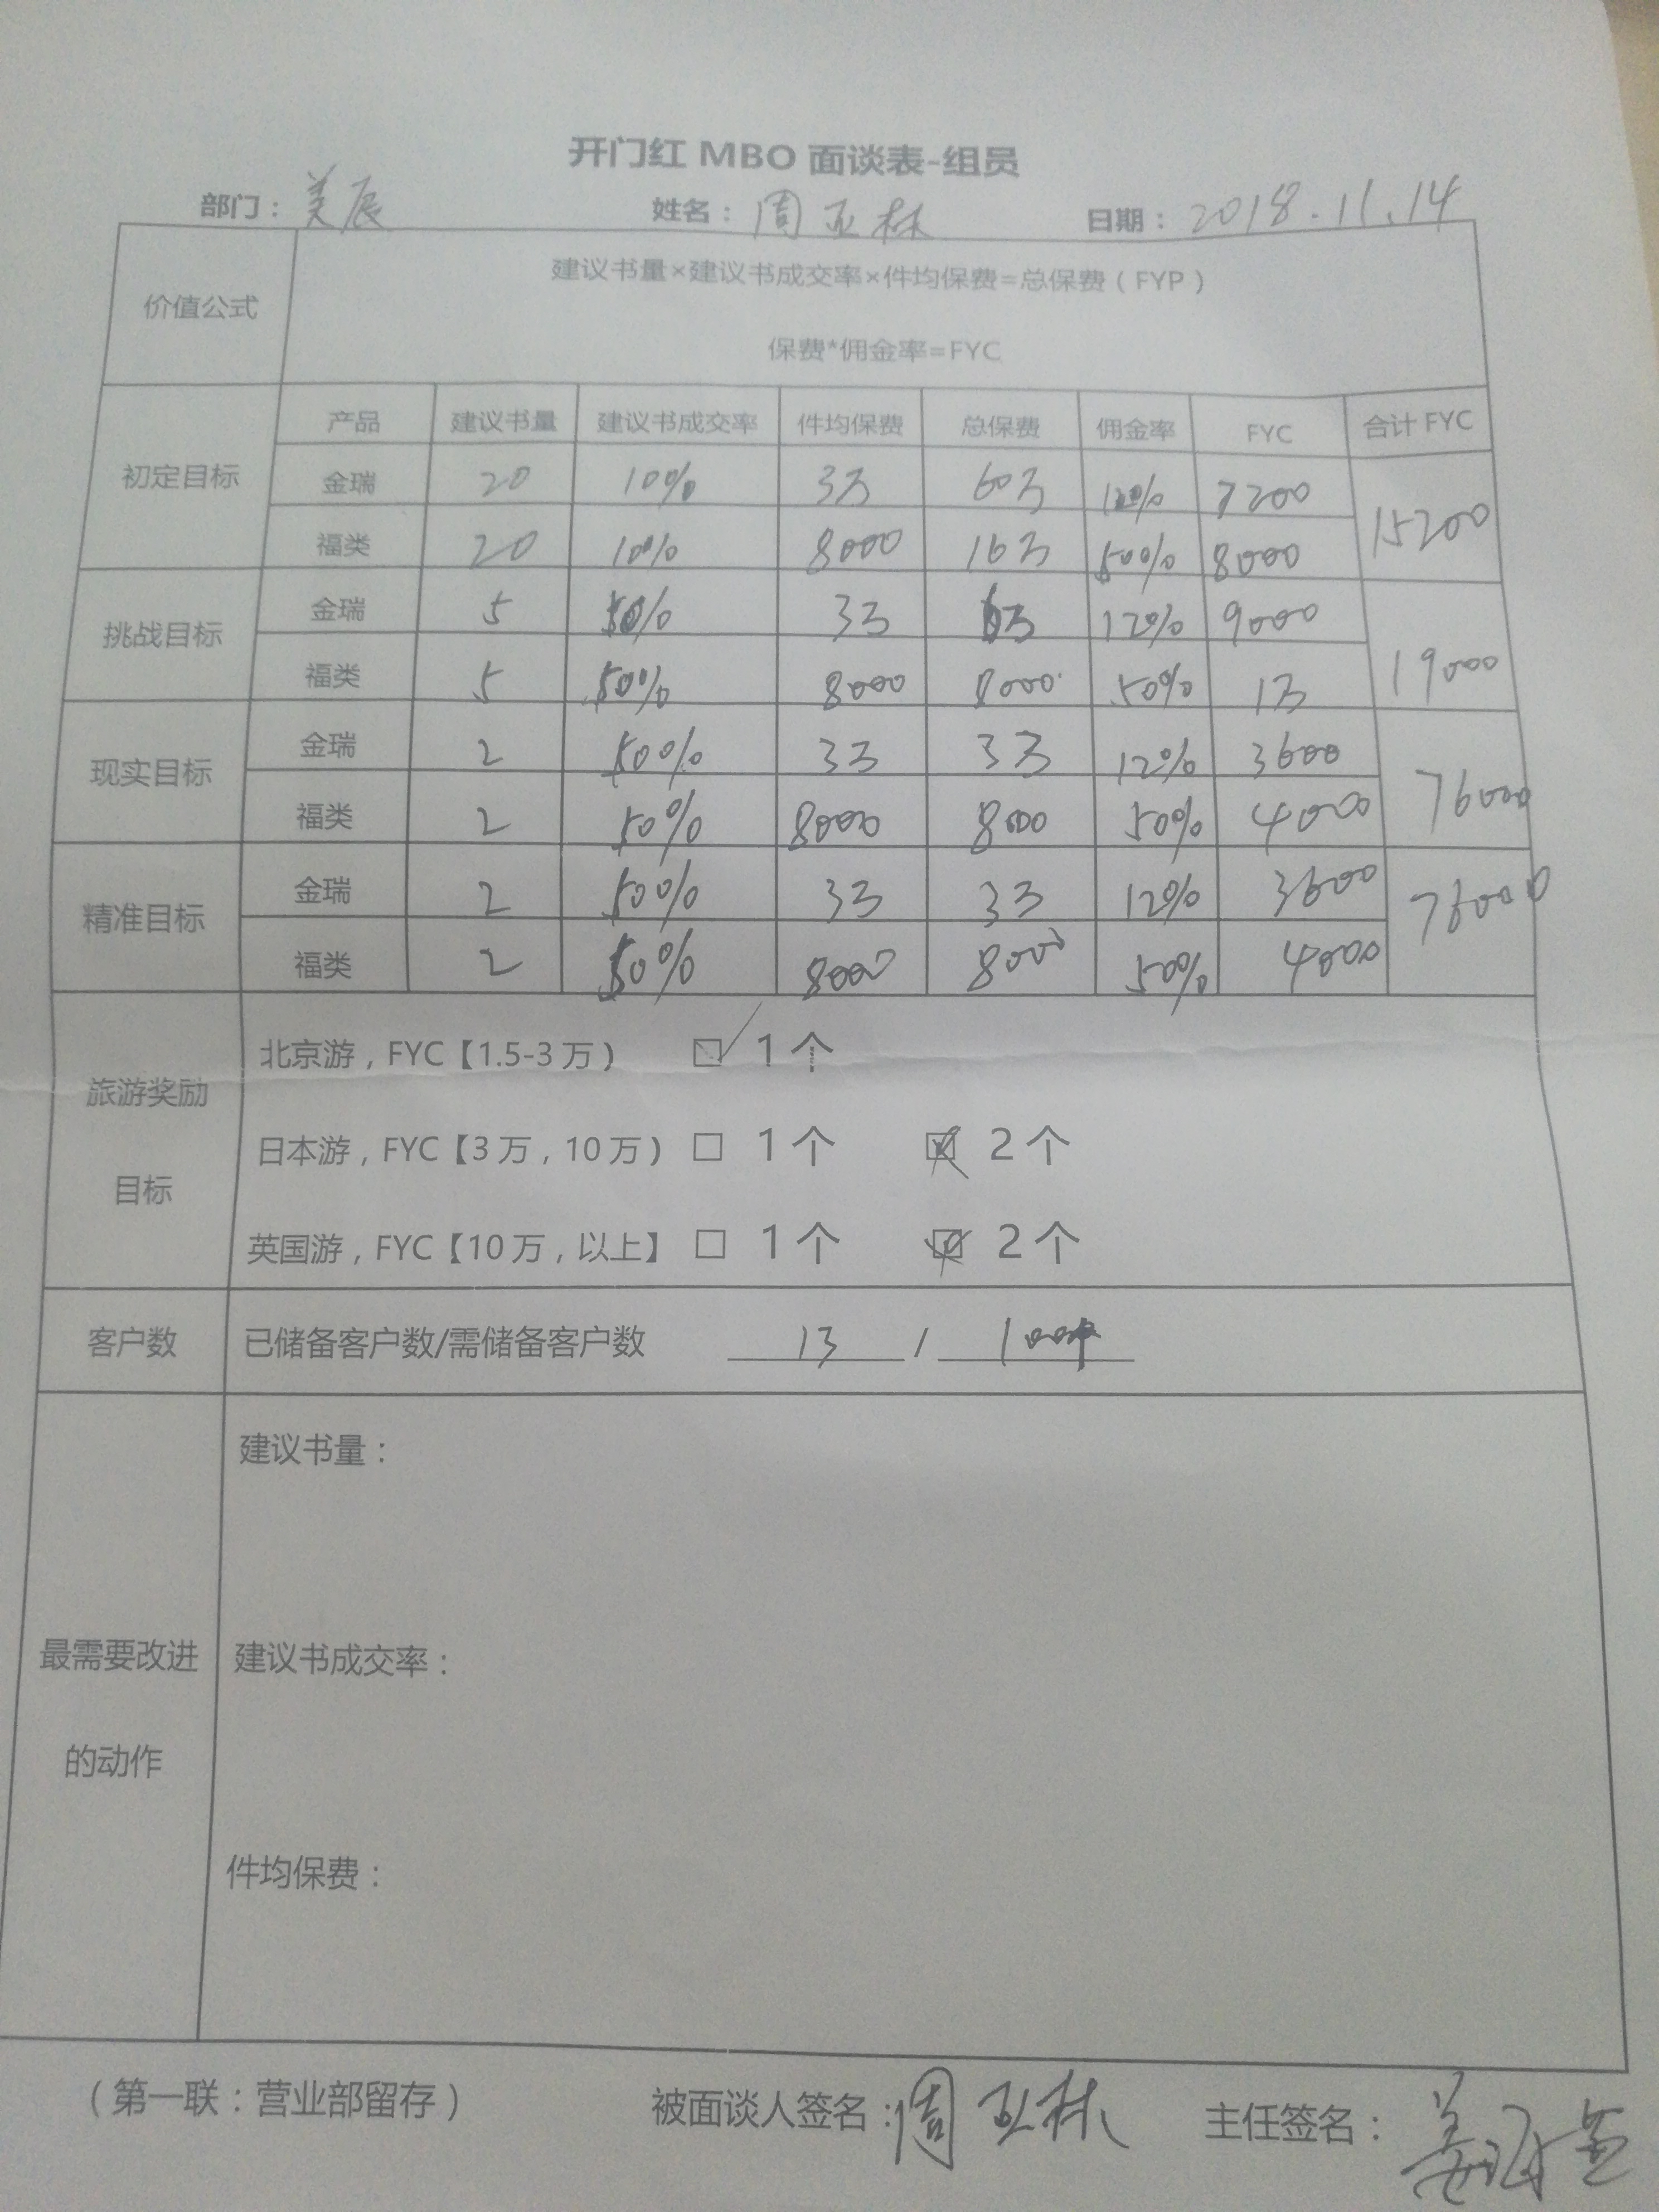 开门红 MBO 面谈表-组员
部门：美辰 姓名：周亚林 日期：2018.11.14
价值公式
建议书量×建议书成交率×件均保费=总保费（FYP）
保费*佣金率=FYC
初定目标
产品 建议书量 建议书成交率 件均保费 总保费 佣金率 FYC 合计 FYC
金瑞 20 10% 3万 60万 12% 7200
15200
福类 20 10% 8000 16万 50% 8000
挑战目标
金瑞 5 50% 3万 12% 9000
19000
福类 5 50% 8000 8000 50% 1万
现实目标
金瑞 2 50% 3万 3万 12% 3600
76000
福类 2 50% 8000 8000 50% 4000
精准目标
金瑞 2 50% 3万 3万 12% 3600
76000
福类 2 50% 8000 8000 50% 4000
旅游奖励
目标
北京游，FYC【1.5-3万） 1个
日本游，FYC【3万，10万） □ 1个 2个
英国游，FYC【10万，以上】 □ 1个 2个
客户数
已储备客户数/需储备客户数 13 /
最需要改进
的动作
建议书量：
建议书成交率：
件均保费：
（第一联：营业部留存） 被面谈人签名：周亚林 主任签名：